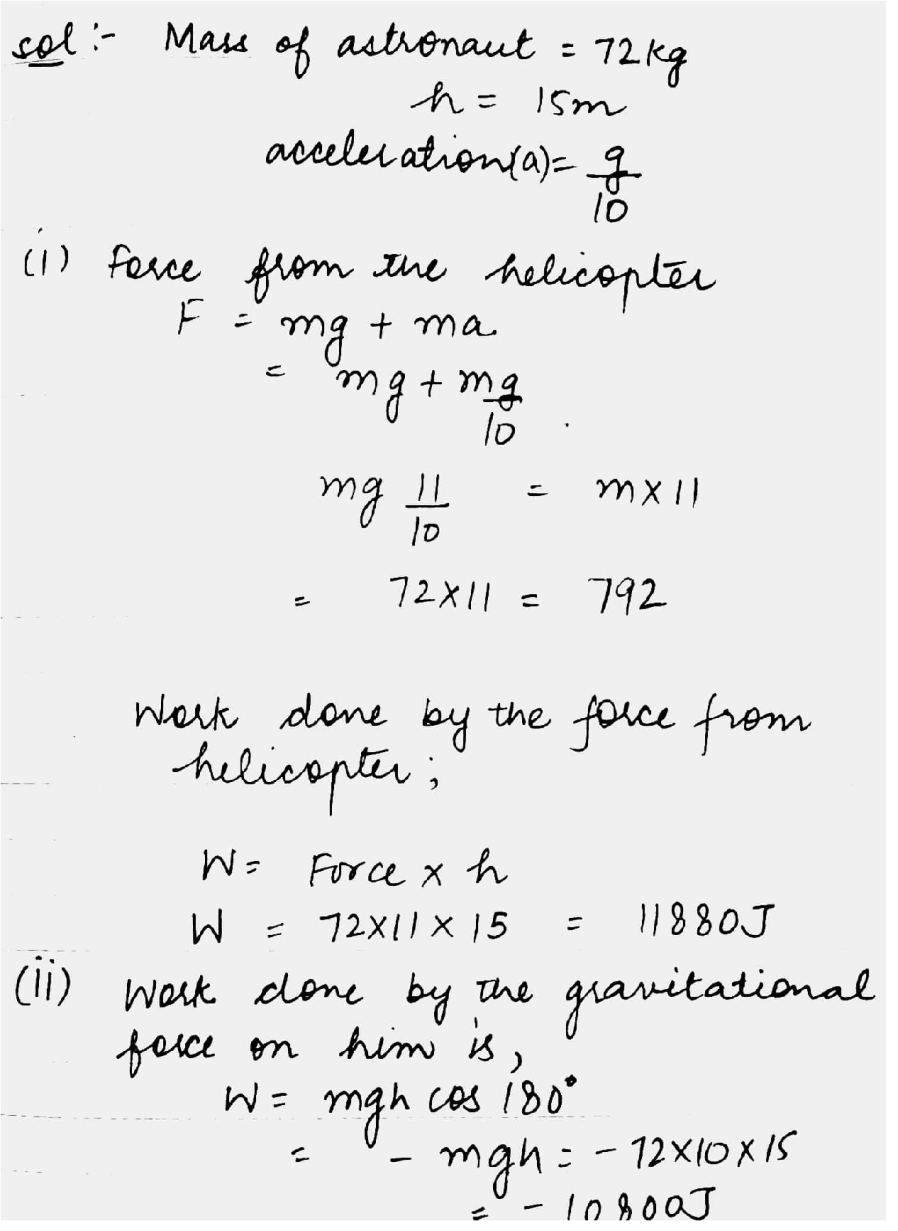 sol :- Mass of astronaut = 72kg
h = 15m
acceleration(a) = g/10
(i) force from the helicopter
F = mg + ma
= mg + mg/10
mg 11/10 = m×11
= 72×11 = 792
Work done by the force from
helicopter;
W = Force × h
W = 72×11×15 = 11880J
(ii) Work done by the gravitational
force on him is,
W = mgh cos 180°
= - mgh = - 72×10×15
= - 10800J